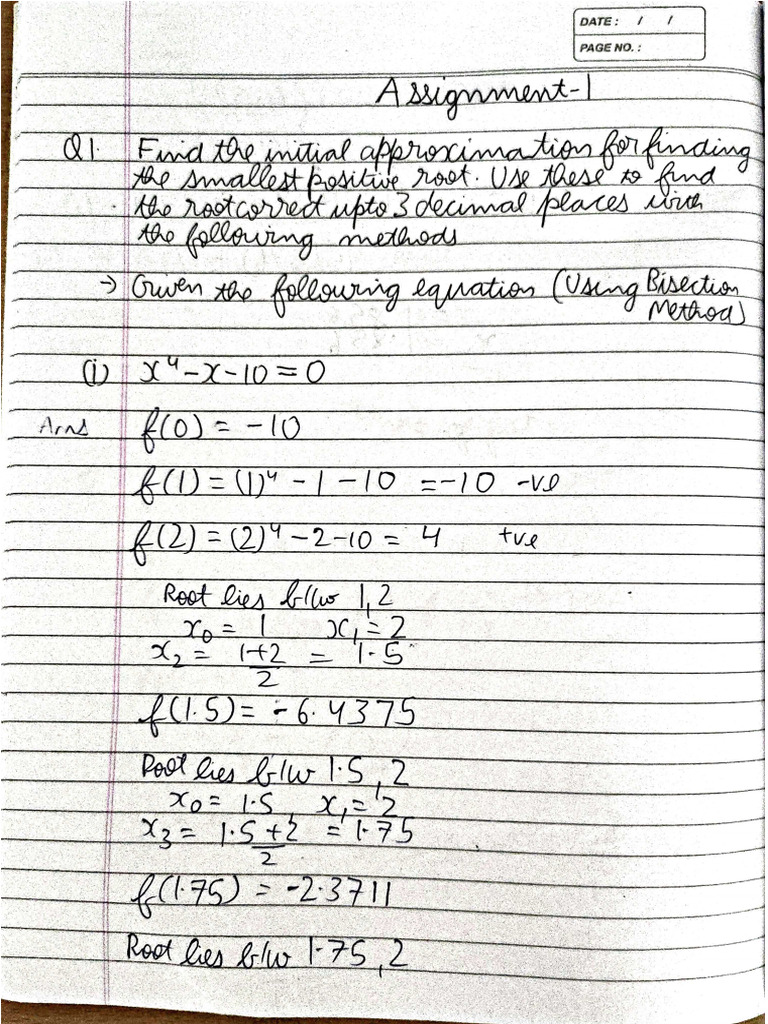 DATE: / /
PAGE NO.:
Assignment-1
Q1. Find the initial approximation for finding
the smallest positive root. Use these to find
the root correct upto 3 decimal places with
the following methods
→ Given the following equation (Using Bisection
Method)
(i) x⁴-x-10=0
Ans f(0) = -10
f(1) = (1)⁴ - 1 - 10 = -10 -ve
f(2) = (2)⁴ - 2 - 10 = 4 +ve
Root lies b/w 1, 2
x₀ = 1 x₁ = 2
x₂ = 1+2 = 1.5
2
f(1.5) = -6.4375
Root lies b/w 1.5, 2
x₀ = 1.5, x₁ = 2
x₃ = 1.5+2 = 1.75
2
f(1.75) = -2.3711
Root lies b/w 1.75, 2